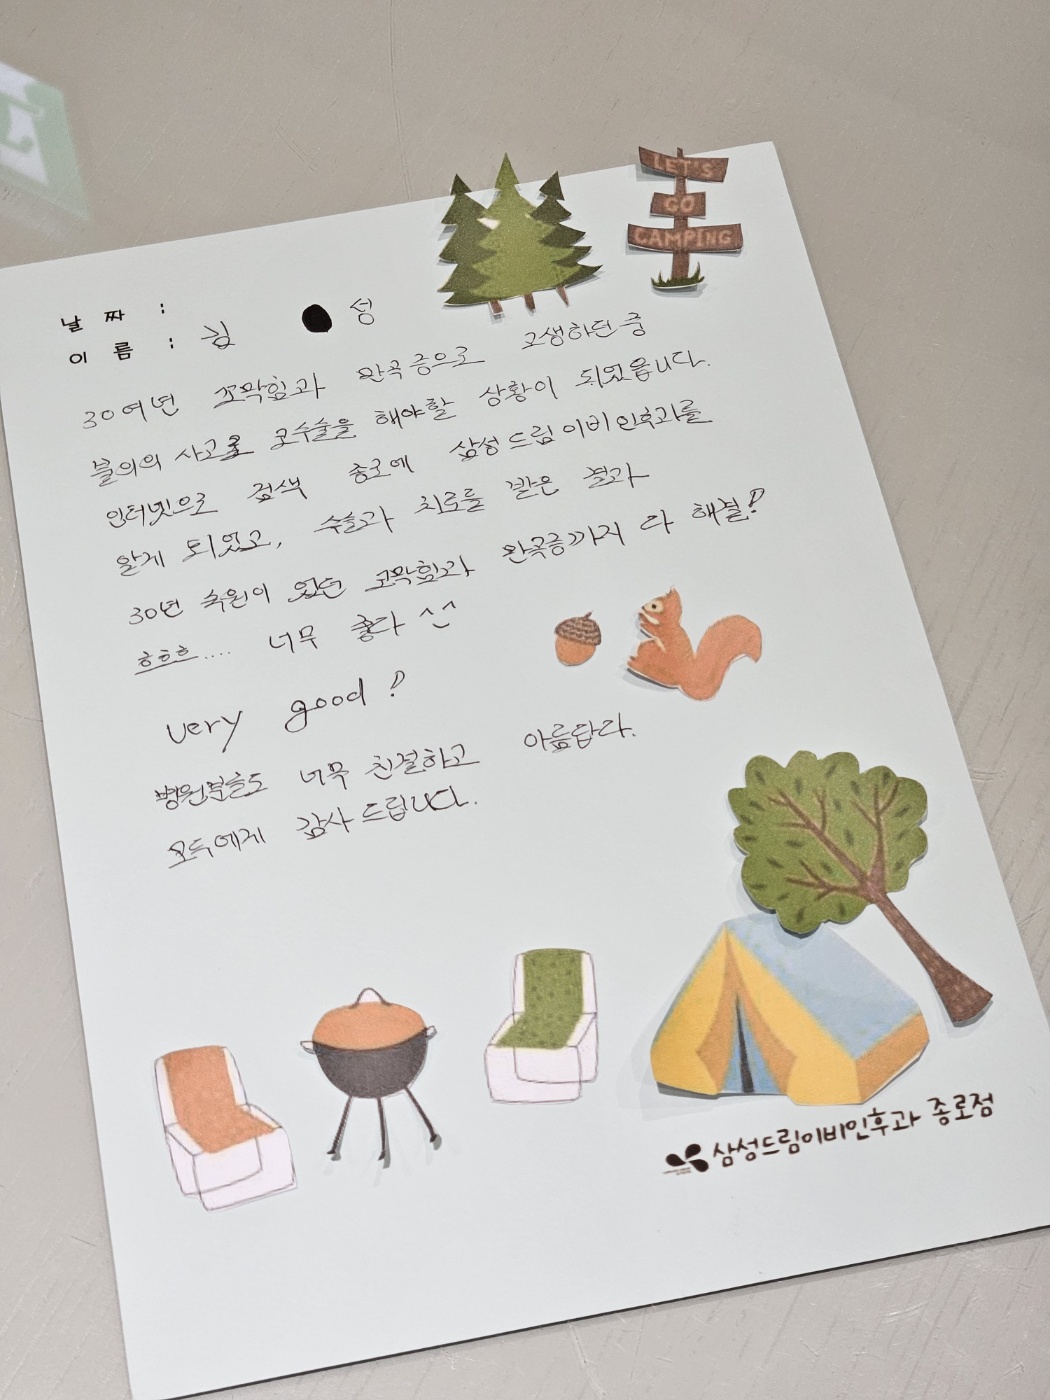 LET'S
GO
CAMPING
날 짜 :
이 름 : 김 성
30여년 코막힘과 만곡증으로 고생하던 중
불의의 사고로 코수술을 해야할 상황이 되었읍니다.
인터넷으로 검색 종로에 삼성드림이비인후과를
알게 되었고, 수술과 치료를 받은 결과
30년 숙원이 었던 코막힘과 만곡증까지 다 해결!
ㅎㅎㅎ.... 너무 좋다 ^^
very good!
병원분들도 너무 친절하고 아름답다.
모두에게 감사드립니다.
삼성드림이비인후과 종로점